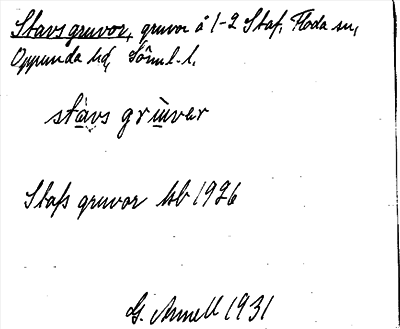 Stavsgruvor, gruvor å 1-2 Staf, Floda sn,
Oppunda hd, Söml. l.
stavs gruver
Stafs gruvor kb 1926
G. Annell 1931